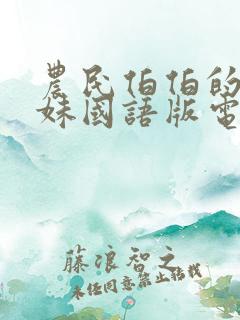 農民伯伯的
妹國語版電
藤浪智之
未任同意禁止轉載